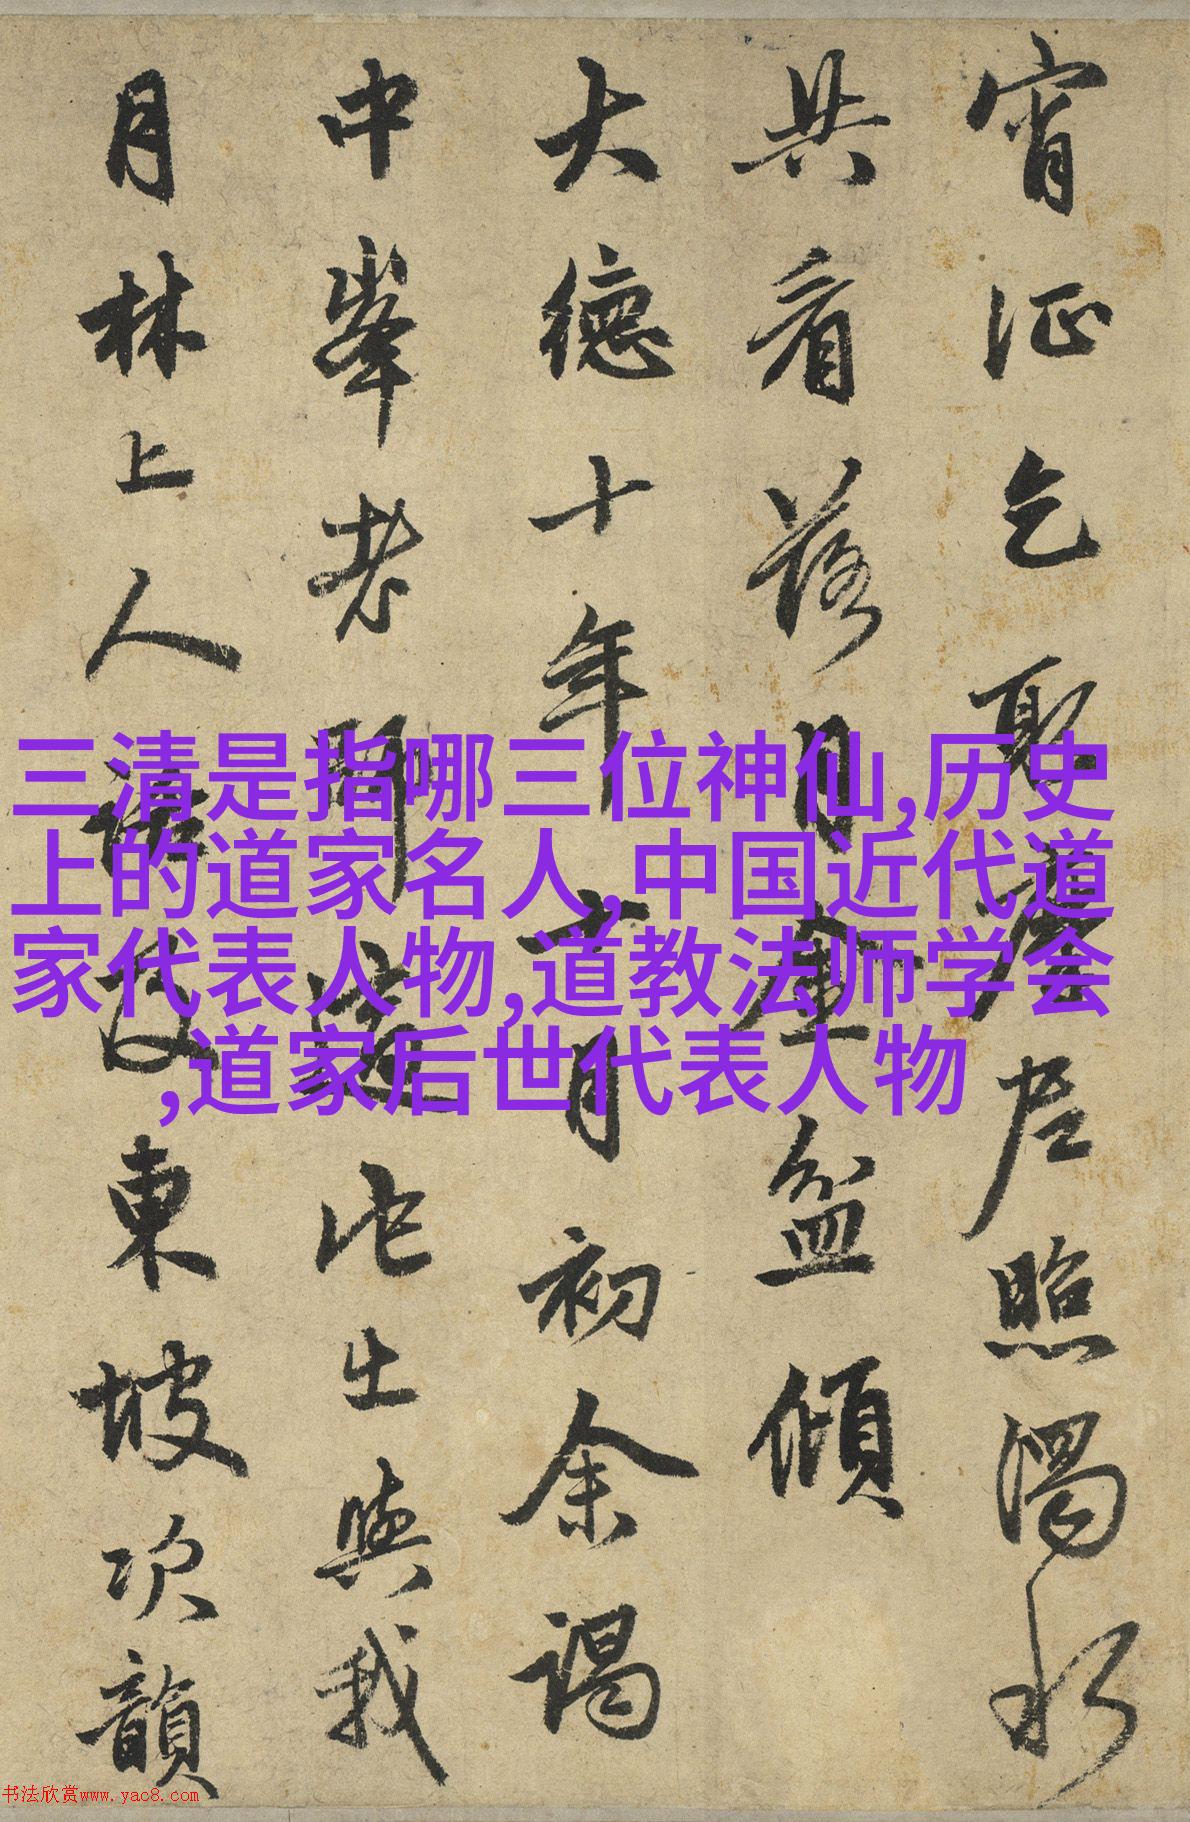 宵征乞取摩尼照濁水
共看落月金盆傾
大德十年六月初余謁
中峯老師他出與我
月林上人語及東坡次韻
三清是指哪三位神仙,历史
上的道家名人,中国近代道
家代表人物,道教法师学会
,道家后世代表人物
书法欣赏www.yac8.com